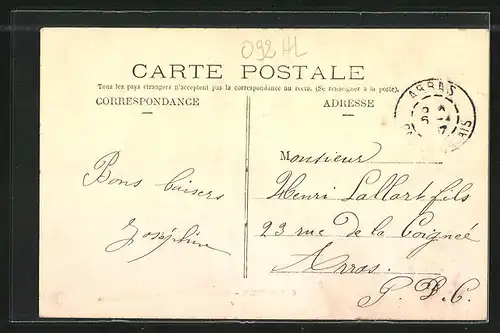 092 HL
CARTE POSTALE
Tous les pays étrangers n'acceptent pas la correspondance au recto. (Se renseigner à la poste).
CORRESPONDANCE
ADRESSE
ARRAS
Bons baisers
Joséphine
Monsieur
Henri Lallart fils
23 rue de la Coignée
Arras.
P. D. C.